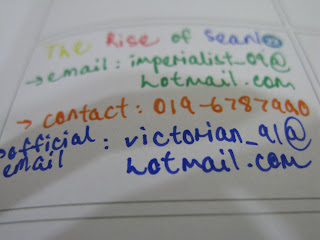 The Rise of Sean
→ email : imperialist_09@
hotmail.com
→ contact : 019-6787990
official : victorian_91@
email hotmail.com